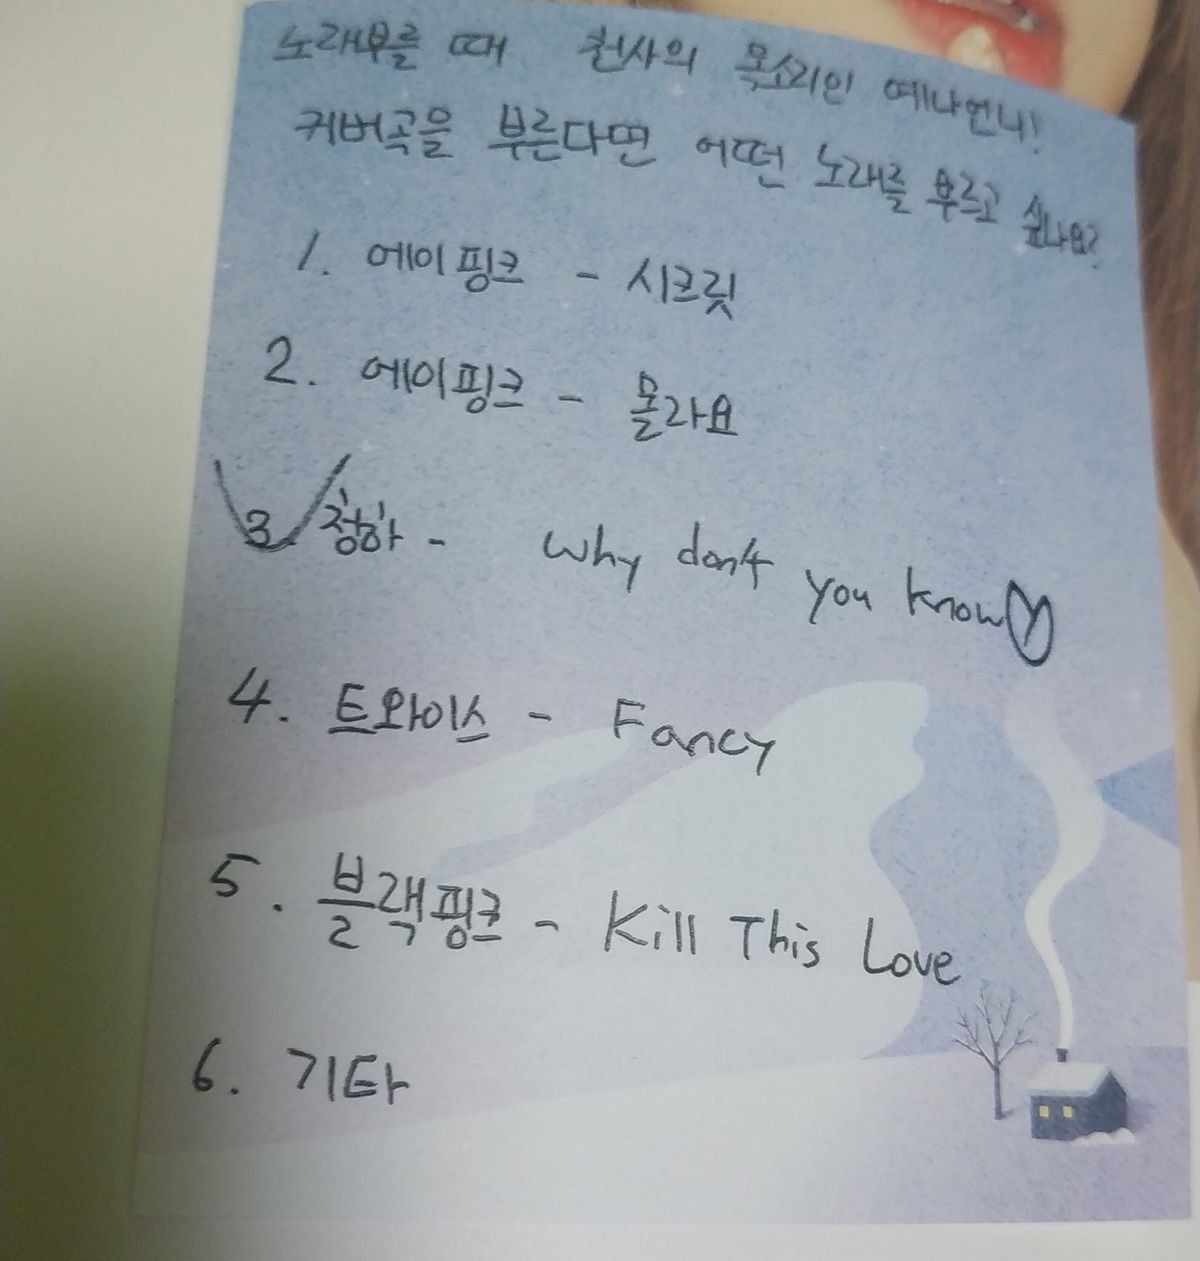 노래부를 때 천사의 목소리인 예나언니!
커버곡을 부른다면 어떤 노래를 부르고 싶나요?
1. 에이핑크 - 시크릿
2. 에이핑크 - 몰라요
3 청하 - Why don't you know
4. 트와이스 - Fancy
5. 블랙핑크 - Kill This Love
6. 기타